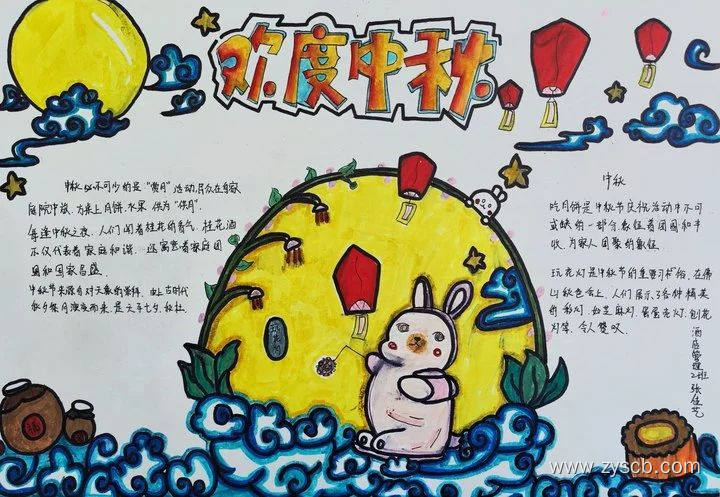 欢度中秋
中秋必不可少的是“赏月”活动,民众在自家
庭院中放一方桌上月饼、水果 供为“供月”.
每逢中秋之夜,人们闻着桂花的香气,桂花酒
不仅代表着家庭和谐,还寓意着家庭团
圆和国家昌盛.
中秋节来源自对天象的崇拜,由上古时代
秋夕祭月演变而来,是
中秋
吃月饼是中秋节庆祝活动中不可
或缺的一部分,象征着团圆和丰
收,为家人团聚的象征
玩花灯是中秋节的重要习俗,在佛
山秋色会上,人们展示了各种精美
的彩灯,如芝麻灯、蛋壳灯、刨花
灯等,令人赞叹.
酒店管理2班 张佳艺
福
www.zyscb.com